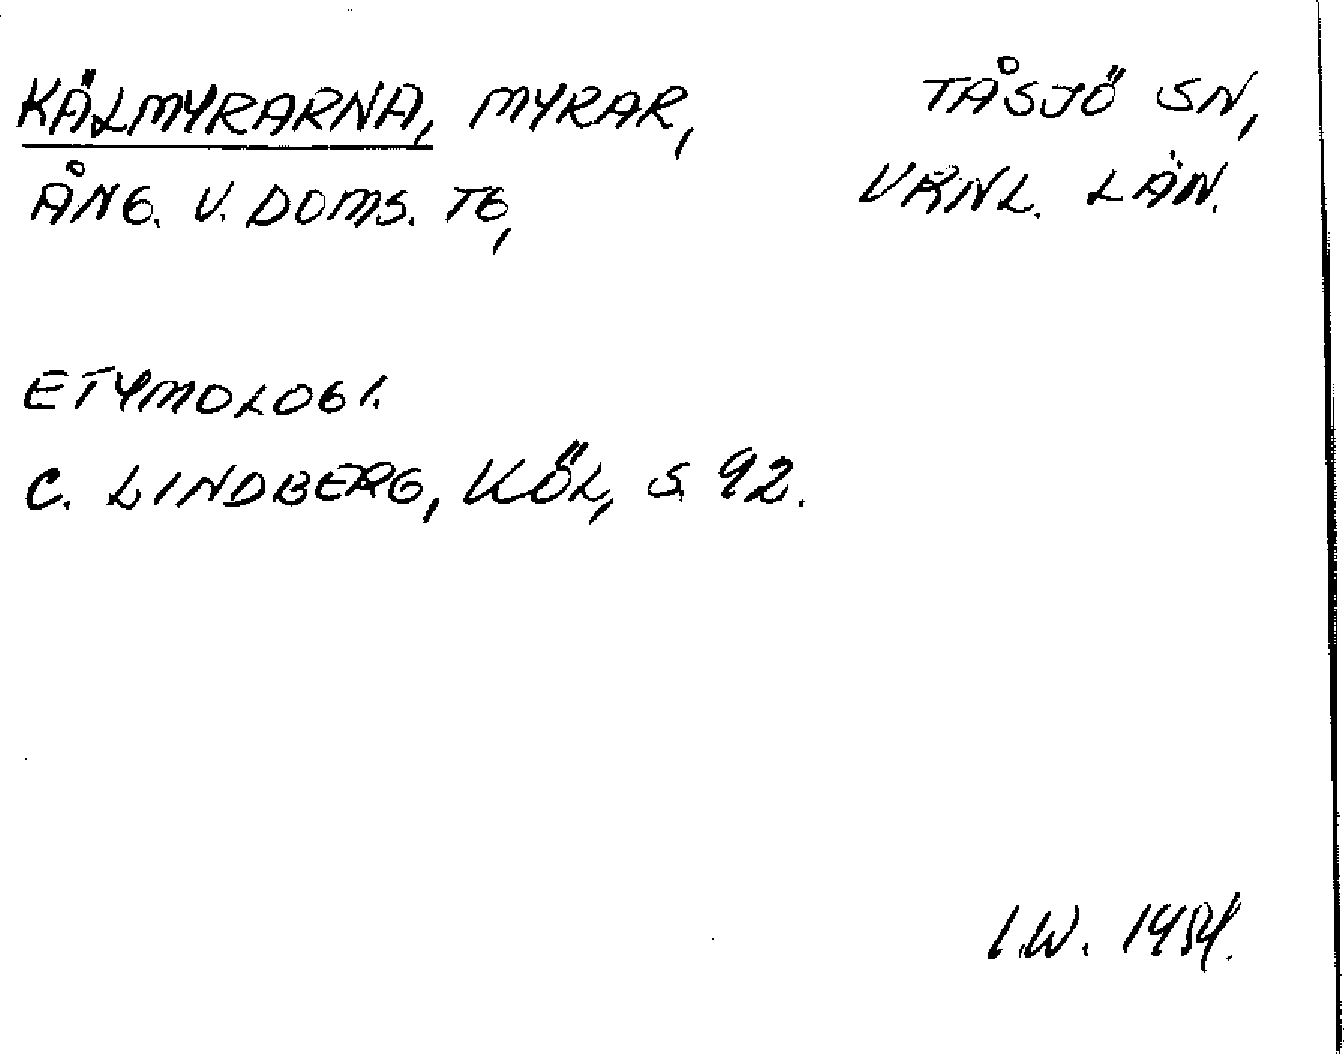 KÄLMYRARNA, MYRAR, TÅSJÖ SN,
ÅNG. V. DOMS. TG, VRNL. LÄN.
ETYMOLOGI.
C. LINDBERG, KÖL, S. 92.
I.W. 1954.